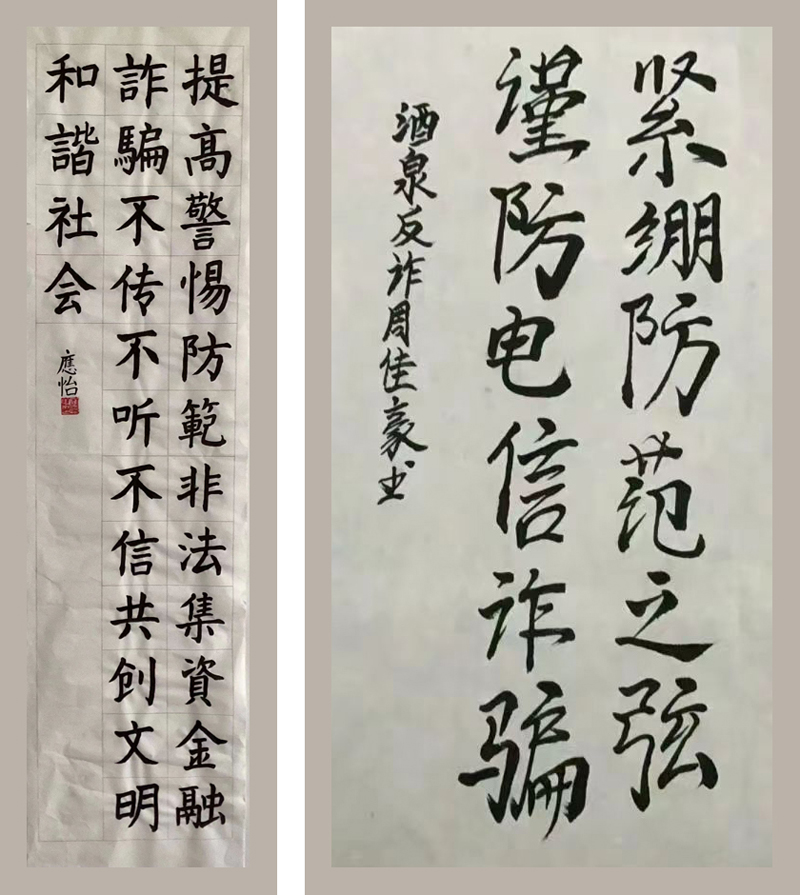 提髙警惕防範非法集資金融
詐騙不传不听不信共创文明
和諧社会
應怡
紧绷防范之弦
谨防电信诈骗
酒泉反诈周佳豪书